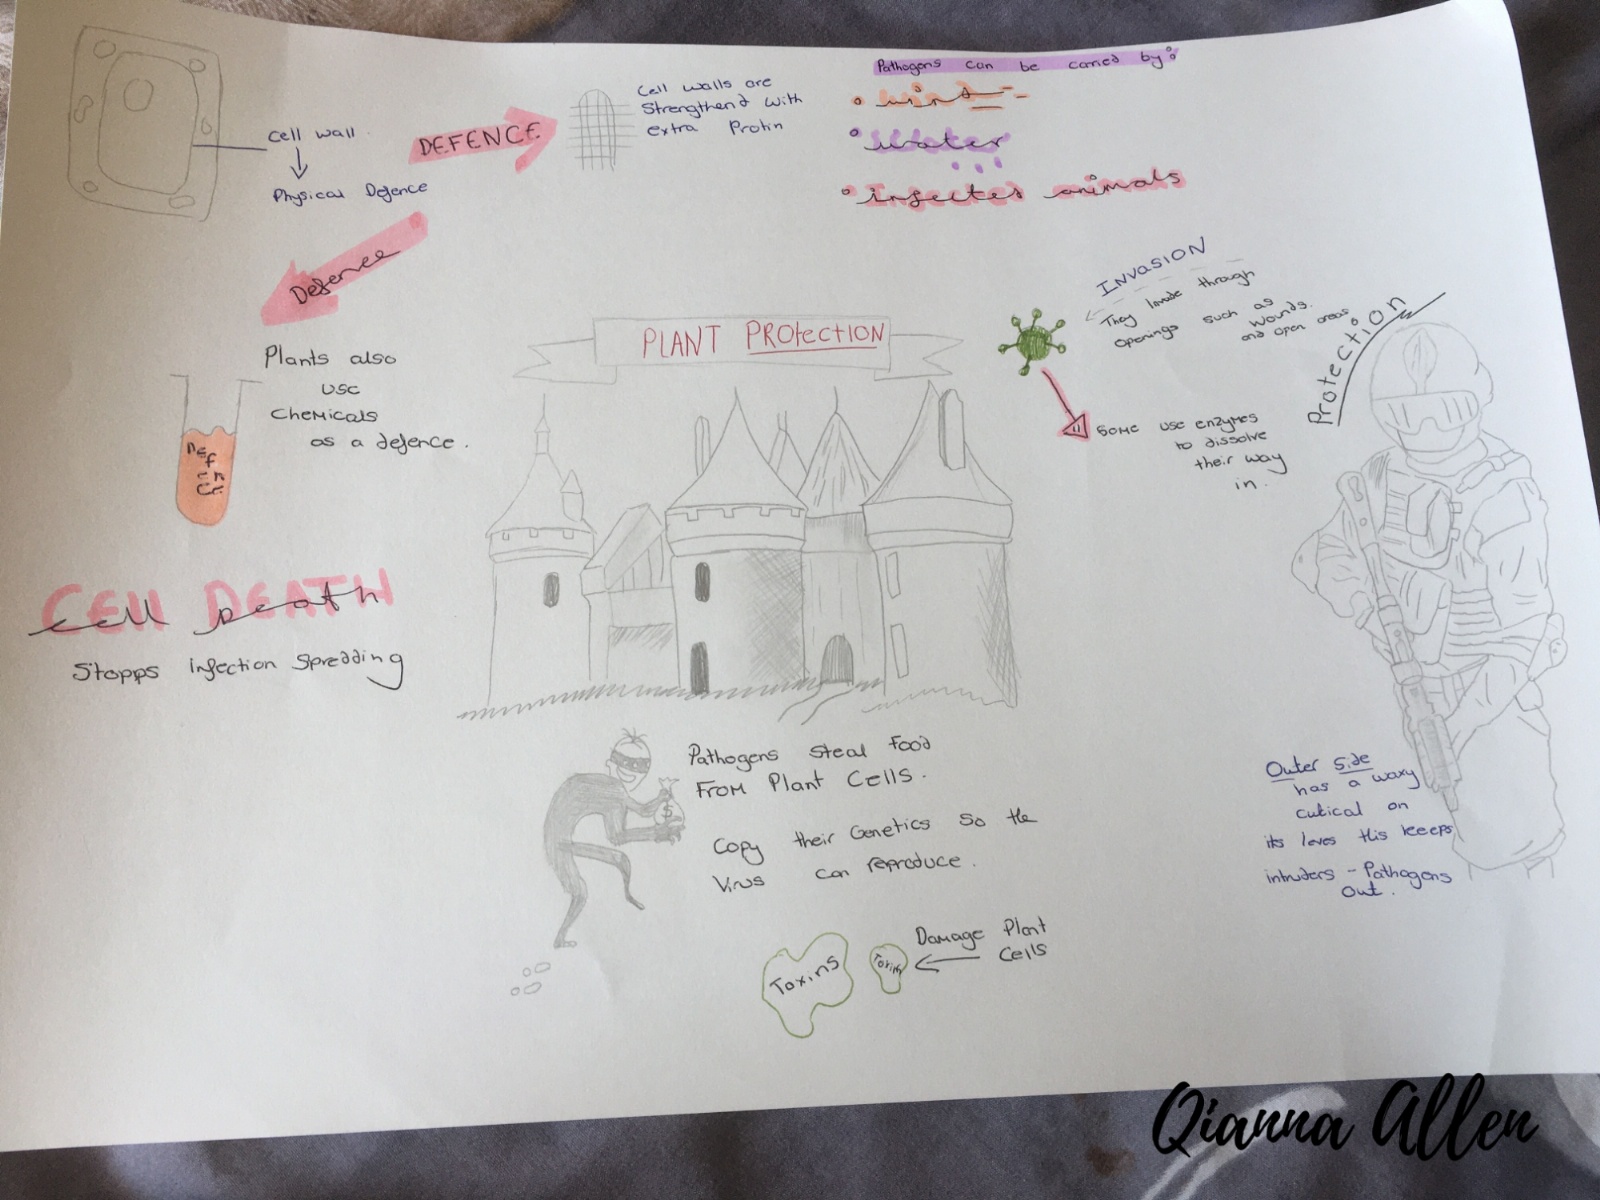 Cell wall
Physical Defence
DEFENCE
Cell walls are
Strengthend with
extra Protin
Pathogens can be carried by:
• wind
• water
• infected animals
Defence
Plants also
use
Chemicals
as a defence.
PLANT PROtection
INVASION
They Invade through
openings such as
wounds.
and open areas
Some use enzymes
to dissolve
their way
in.
Protection
CEll DEATH
cell death
Stopps infection Spredding
Pathogens Steal Food
From Plant Cells.
Copy their Genetics So the
Virus can reproduce.
Toxins
Toxin
Damage Plant
Cells
Outer Side
has a waxy
cutical on
its leves this keeeps
intruders - Pathogens
Out.
Qianna Allen